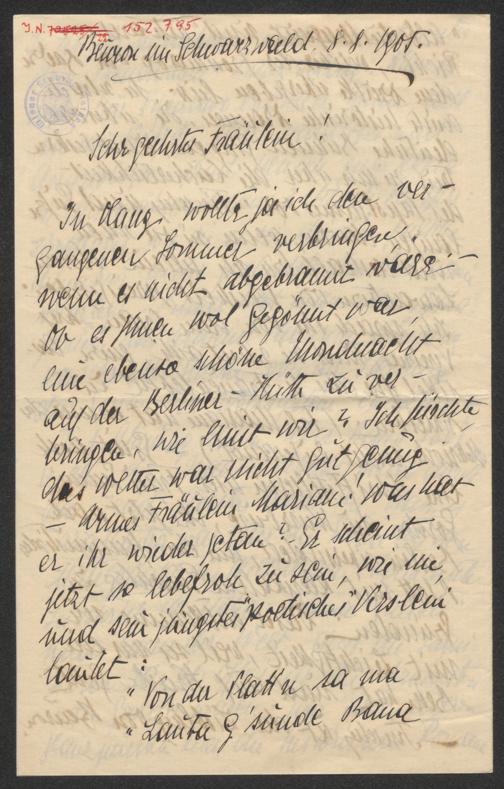 J.N. 152.795
Beuron im Schwarzwald. 8.8.1905.
Sehr geehrtes Fräulein!
In wollte ja ich den ver-
gangenen Sommer verbringen,
wenn es nicht abgebrannt wäre. -
Ob es Ihnen wol gegönnt war,
eine ebenso schöne Mondnacht
auf der Berliner-Hütte zu ver-
bringen, wie einst wir? Ich fürchte,
das Wetter war nicht gut genug
- Armes Fräulein Mariani! Was hat
er ihr wieder getan? - Er scheint
jetzt so lebefroh zu sein, wie nie
und sein jüngstes "poetisches" Verslein
lautet:
"Von der Plattn sa ma
"Lauta g'sunde Bana